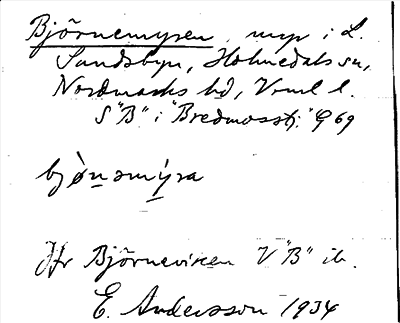 Björnemyren, myr i L.
Sundsbyn, Holmedals sn,
Nordmarks hd, Vrml l.
S "B" i "Bredmosstj." Q 69
bjö̀nomýra
Jfr Björneviken V "B" ib.
E. Andersson 1934